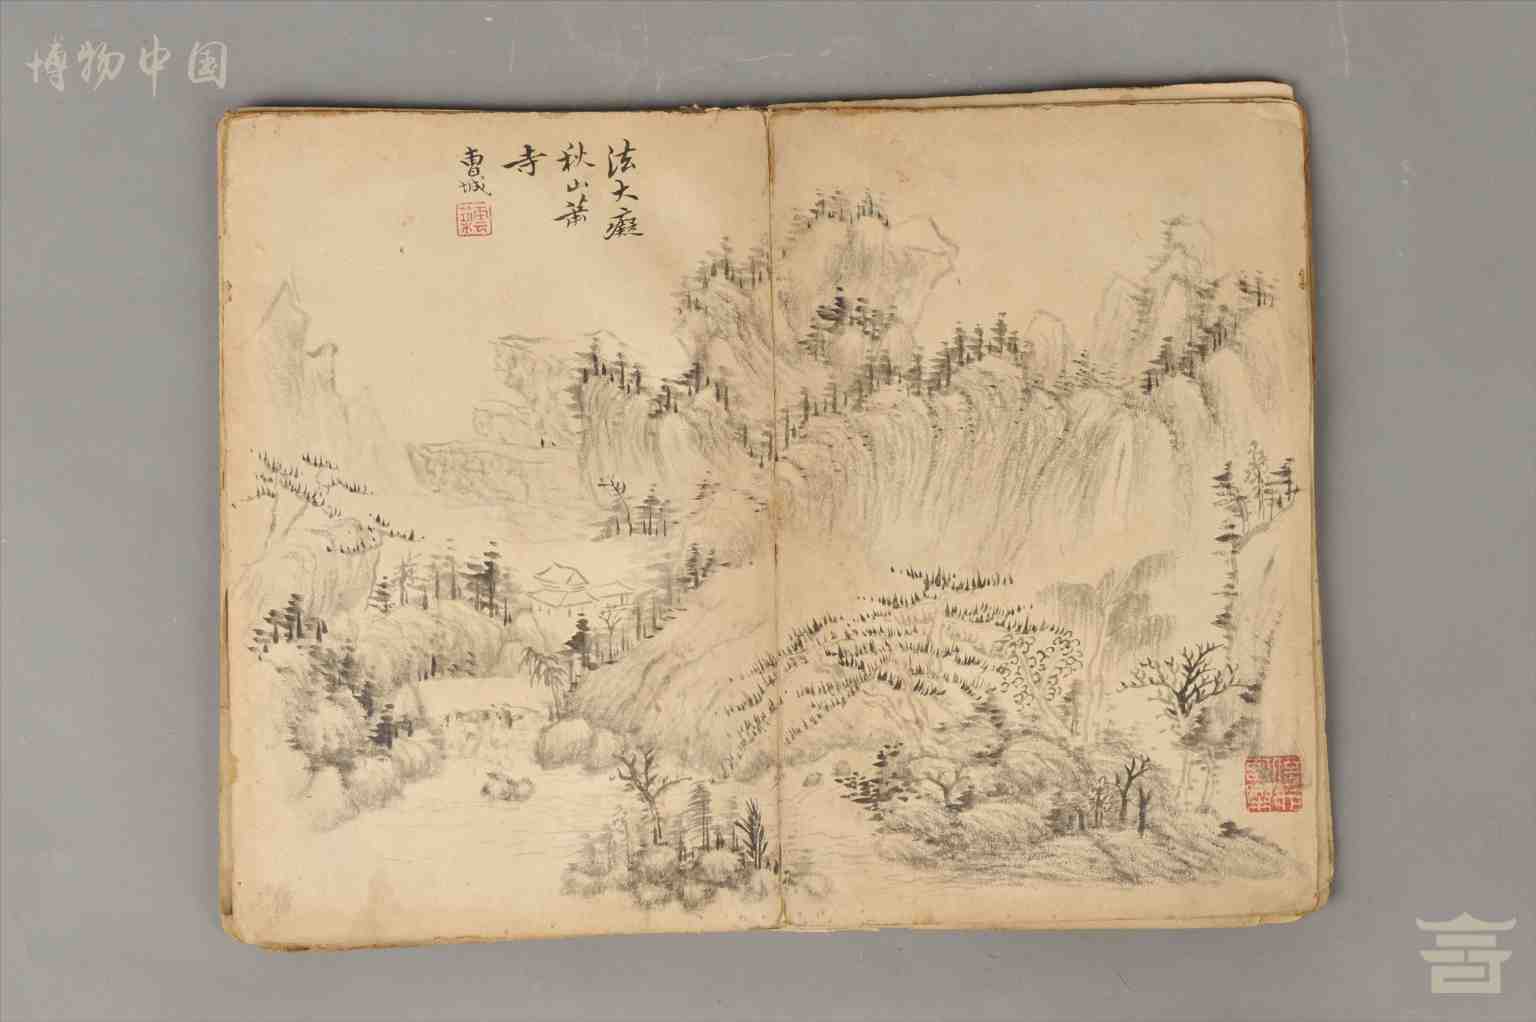 博物中国
法大癡
秋山萧
寺
曹城